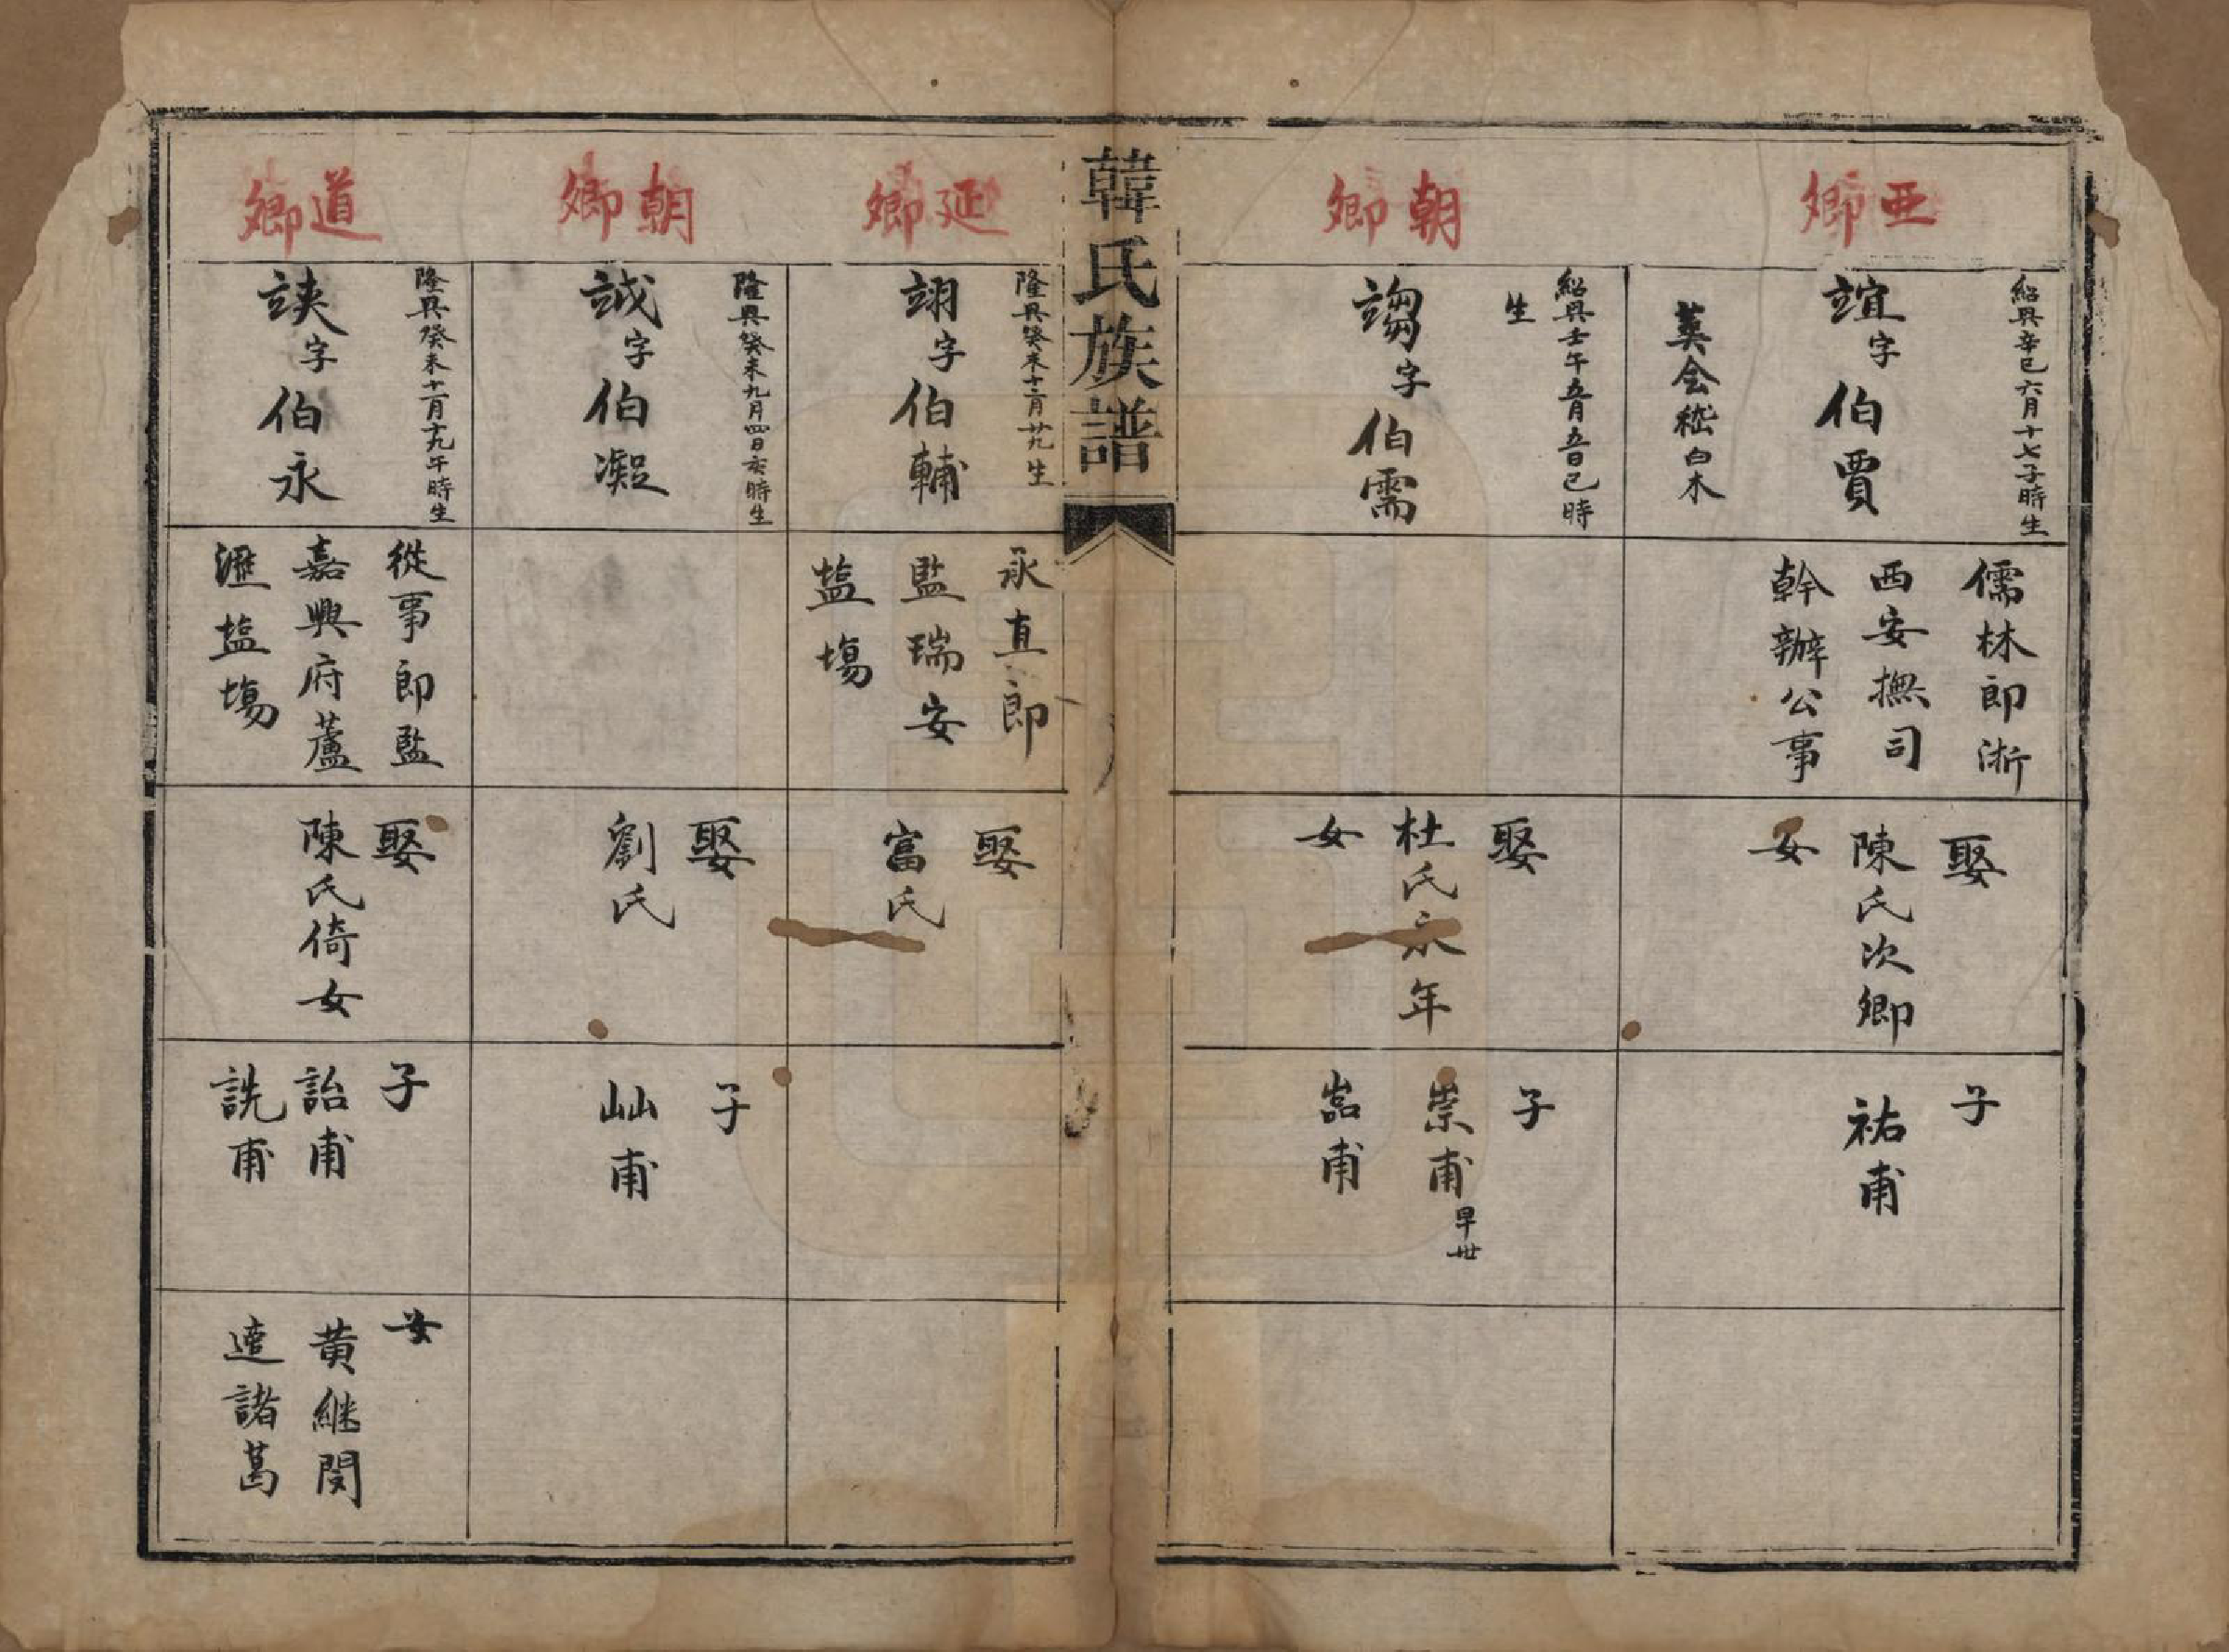 亜卿
紹興辛巳六月十七子時生
竩字伯賈
葬会稽白木
儒林郎淅
西安撫司
幹辦公事
娶
陳氏次卿
女
子
祐甫
朝卿
紹興壬午五月五日巳時
生
字伯需
娶
杜氏永年
女
子
崇甫早丗
嵓甫
韓氏族譜
延卿
隆興癸未十二月廿九生
翊字伯輔
承直郎
監瑞安
塩塲
娶
富氏
朝卿
隆興癸未九月四日亥時生
字伯凝
娶
劉氏
子
屾甫
道卿
隆興癸未十一月十九午時生
字伯永
從事郎監
嘉興府蘆
瀝塩塲
娶
陳氏倚女
子
詒甫
詵甫
女
黄継閔
逵諸葛